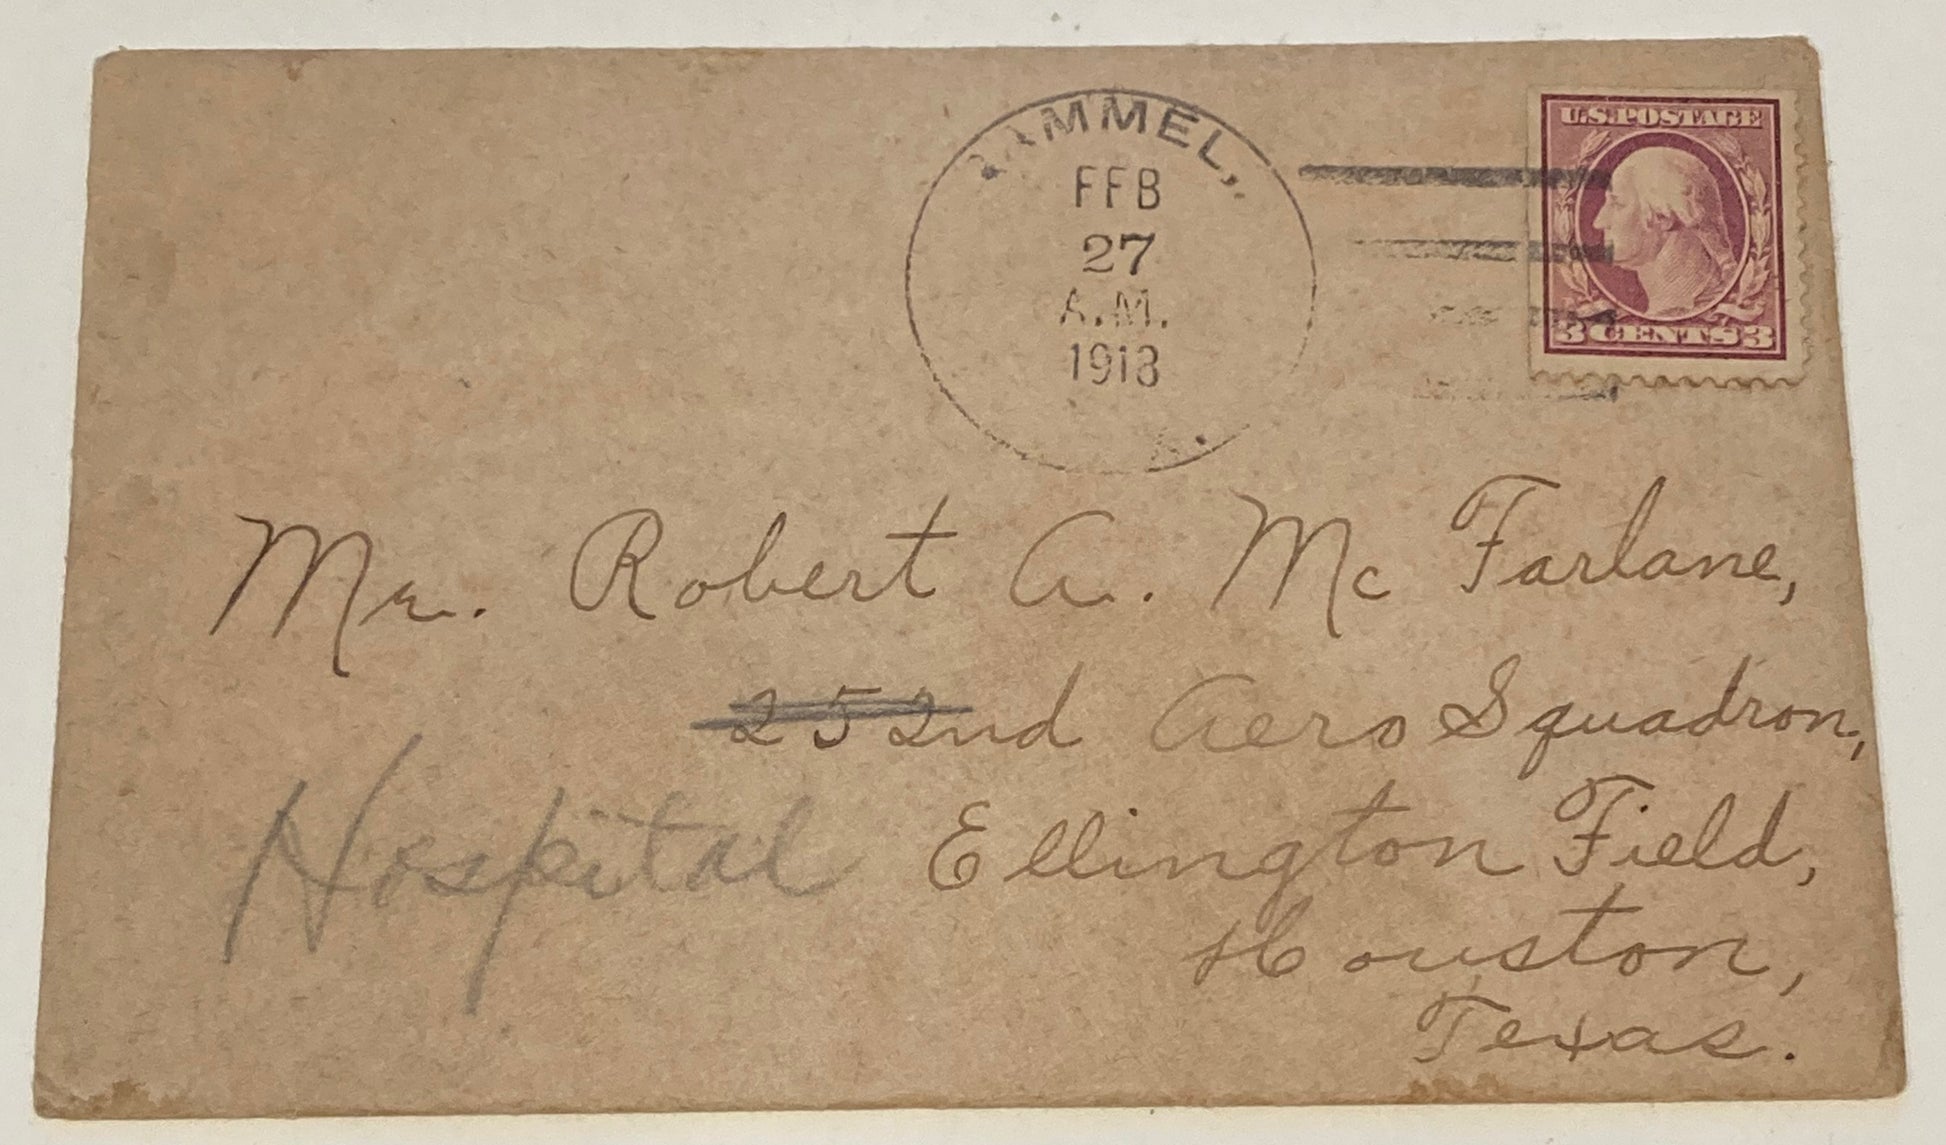 U.S. POSTAGE
FEB
27
A.M.
1918
3 CENTS 3
Mr. Robert A. McFarlane,
252nd Aero Squadron,
Hospital
Ellington Field,
Houston,
Texas.